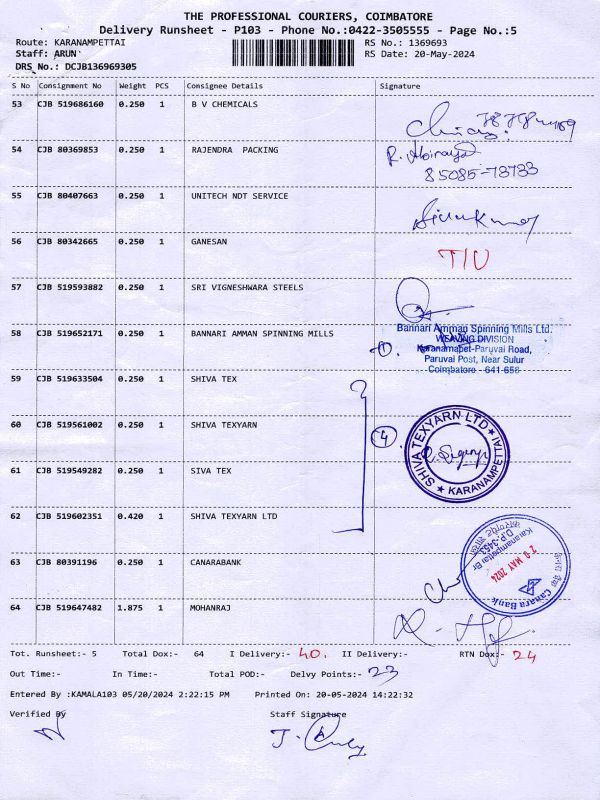 THE PROFESSIONAL COURIERS, COIMBATORE
Delivery Runsheet - P103 - Phone No.:0422-3505555 - Page No.:5
Route: KARANAMPETTAI RS No.: 1369693
Staff: ARUN RS Date: 20-May-2024
DRS No.: DCJB136969305
S No Consignment No Weight PCS Consignee Details Signature
53 CJB 519686160 0.250 1 B V CHEMICALS
54 CJB 80369853 0.250 1 RAJENDRA PACKING
85085-73733
55 CJB 80407663 0.250 1 UNITECH NDT SERVICE
56 CJB 80342665 0.250 1 GANESAN
57 CJB 519593882 0.250 1 SRI VIGNESHWARA STEELS
58 CJB 519652171 0.250 1 BANNARI AMMAN SPINNING MILLS
Bannari Amman Spinning Mills Ltd.
WEAVING DIVISION
Karanampet-Paruvai Road,
Paruvai Post, Near Sulur
Coimbatore - 641 658
59 CJB 519633504 0.250 1 SHIVA TEX
60 CJB 519561002 0.250 1 SHIVA TEXYARN
4
SHIVA TEXYARN LTD
KARANAMPETTAI
61 CJB 519549282 0.250 1 SIVA TEX
62 CJB 519602351 0.420 1 SHIVA TEXYARN LTD
63 CJB 80391196 0.250 1 CANARABANK
Canara Bank
Karanampettai Br
D.P-3453
20 MAY 2024
64 CJB 519647482 1.875 1 MOHANRAJ
Tot. Runsheet:- 5 Total Dox:- 64 I Delivery:- 40. II Delivery:- RTN Dox:- 24
Out Time:- In Time:- Total POD:- Delvy Points:- 23
Entered By :KAMALA103 05/20/2024 2:22:15 PM Printed On: 20-05-2024 14:22:32
Verified By Staff Signature